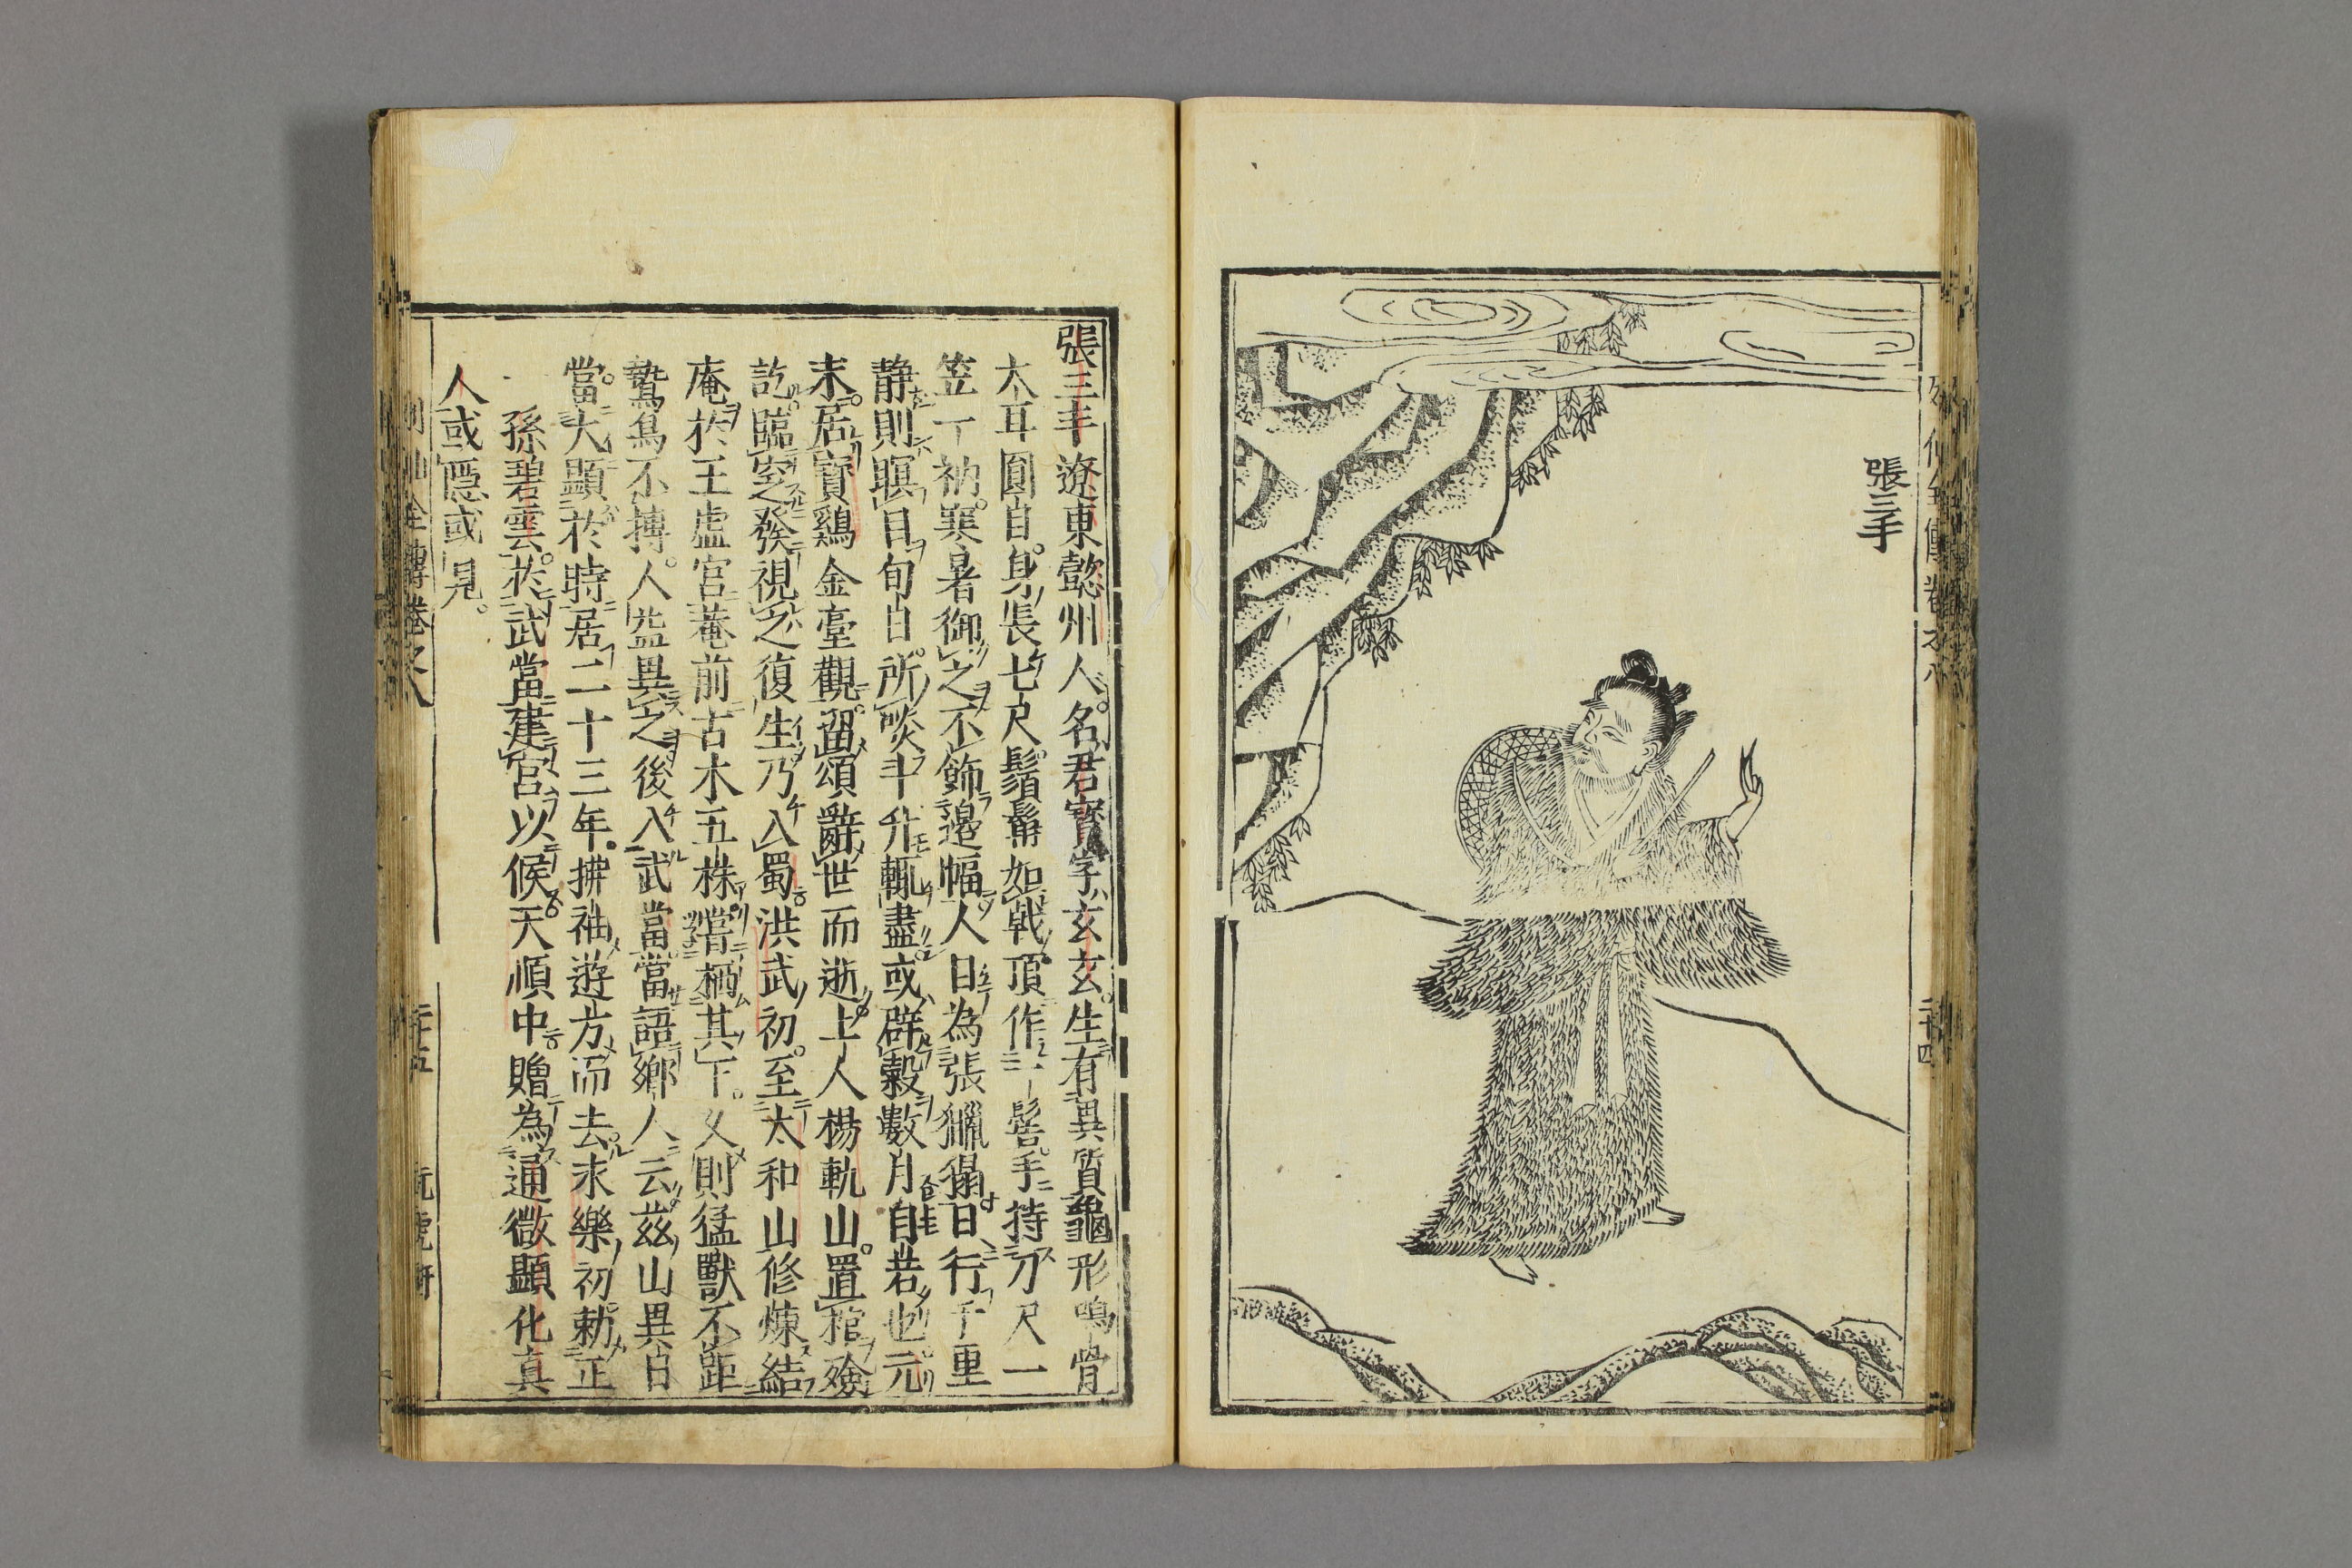 張三丰
二十四
張三丰遼東懿州人名君寶字玄玄生有異質龜形鶴骨
大耳圓目身長七尺鬚髯如戟頂作一髻手持刀尺一
笠一衲寒暑御之不飾邊幅人目為張獵獦日行千里
静則瞑目旬日所啖斗升輒盡或辟穀數月自若也元
末居寶鷄金臺觀留頌辭世而逝上人楊軌山置棺殮
訖臨窆發視之復生乃入蜀洪武初至太和山修煉結
庵於玉虛宮菴前古木五株嘗栖其下久則猛獸不距
鷙鳥不搏人益異之後入武當嘗語鄉人云茲山異日
當大顯於時居二十三年拂袖遊方而去永樂初勅正
一孫碧雲於武當建宮以候天順中贈為通微顯化真
人或隱或見
列仙全傳卷之八
二十五